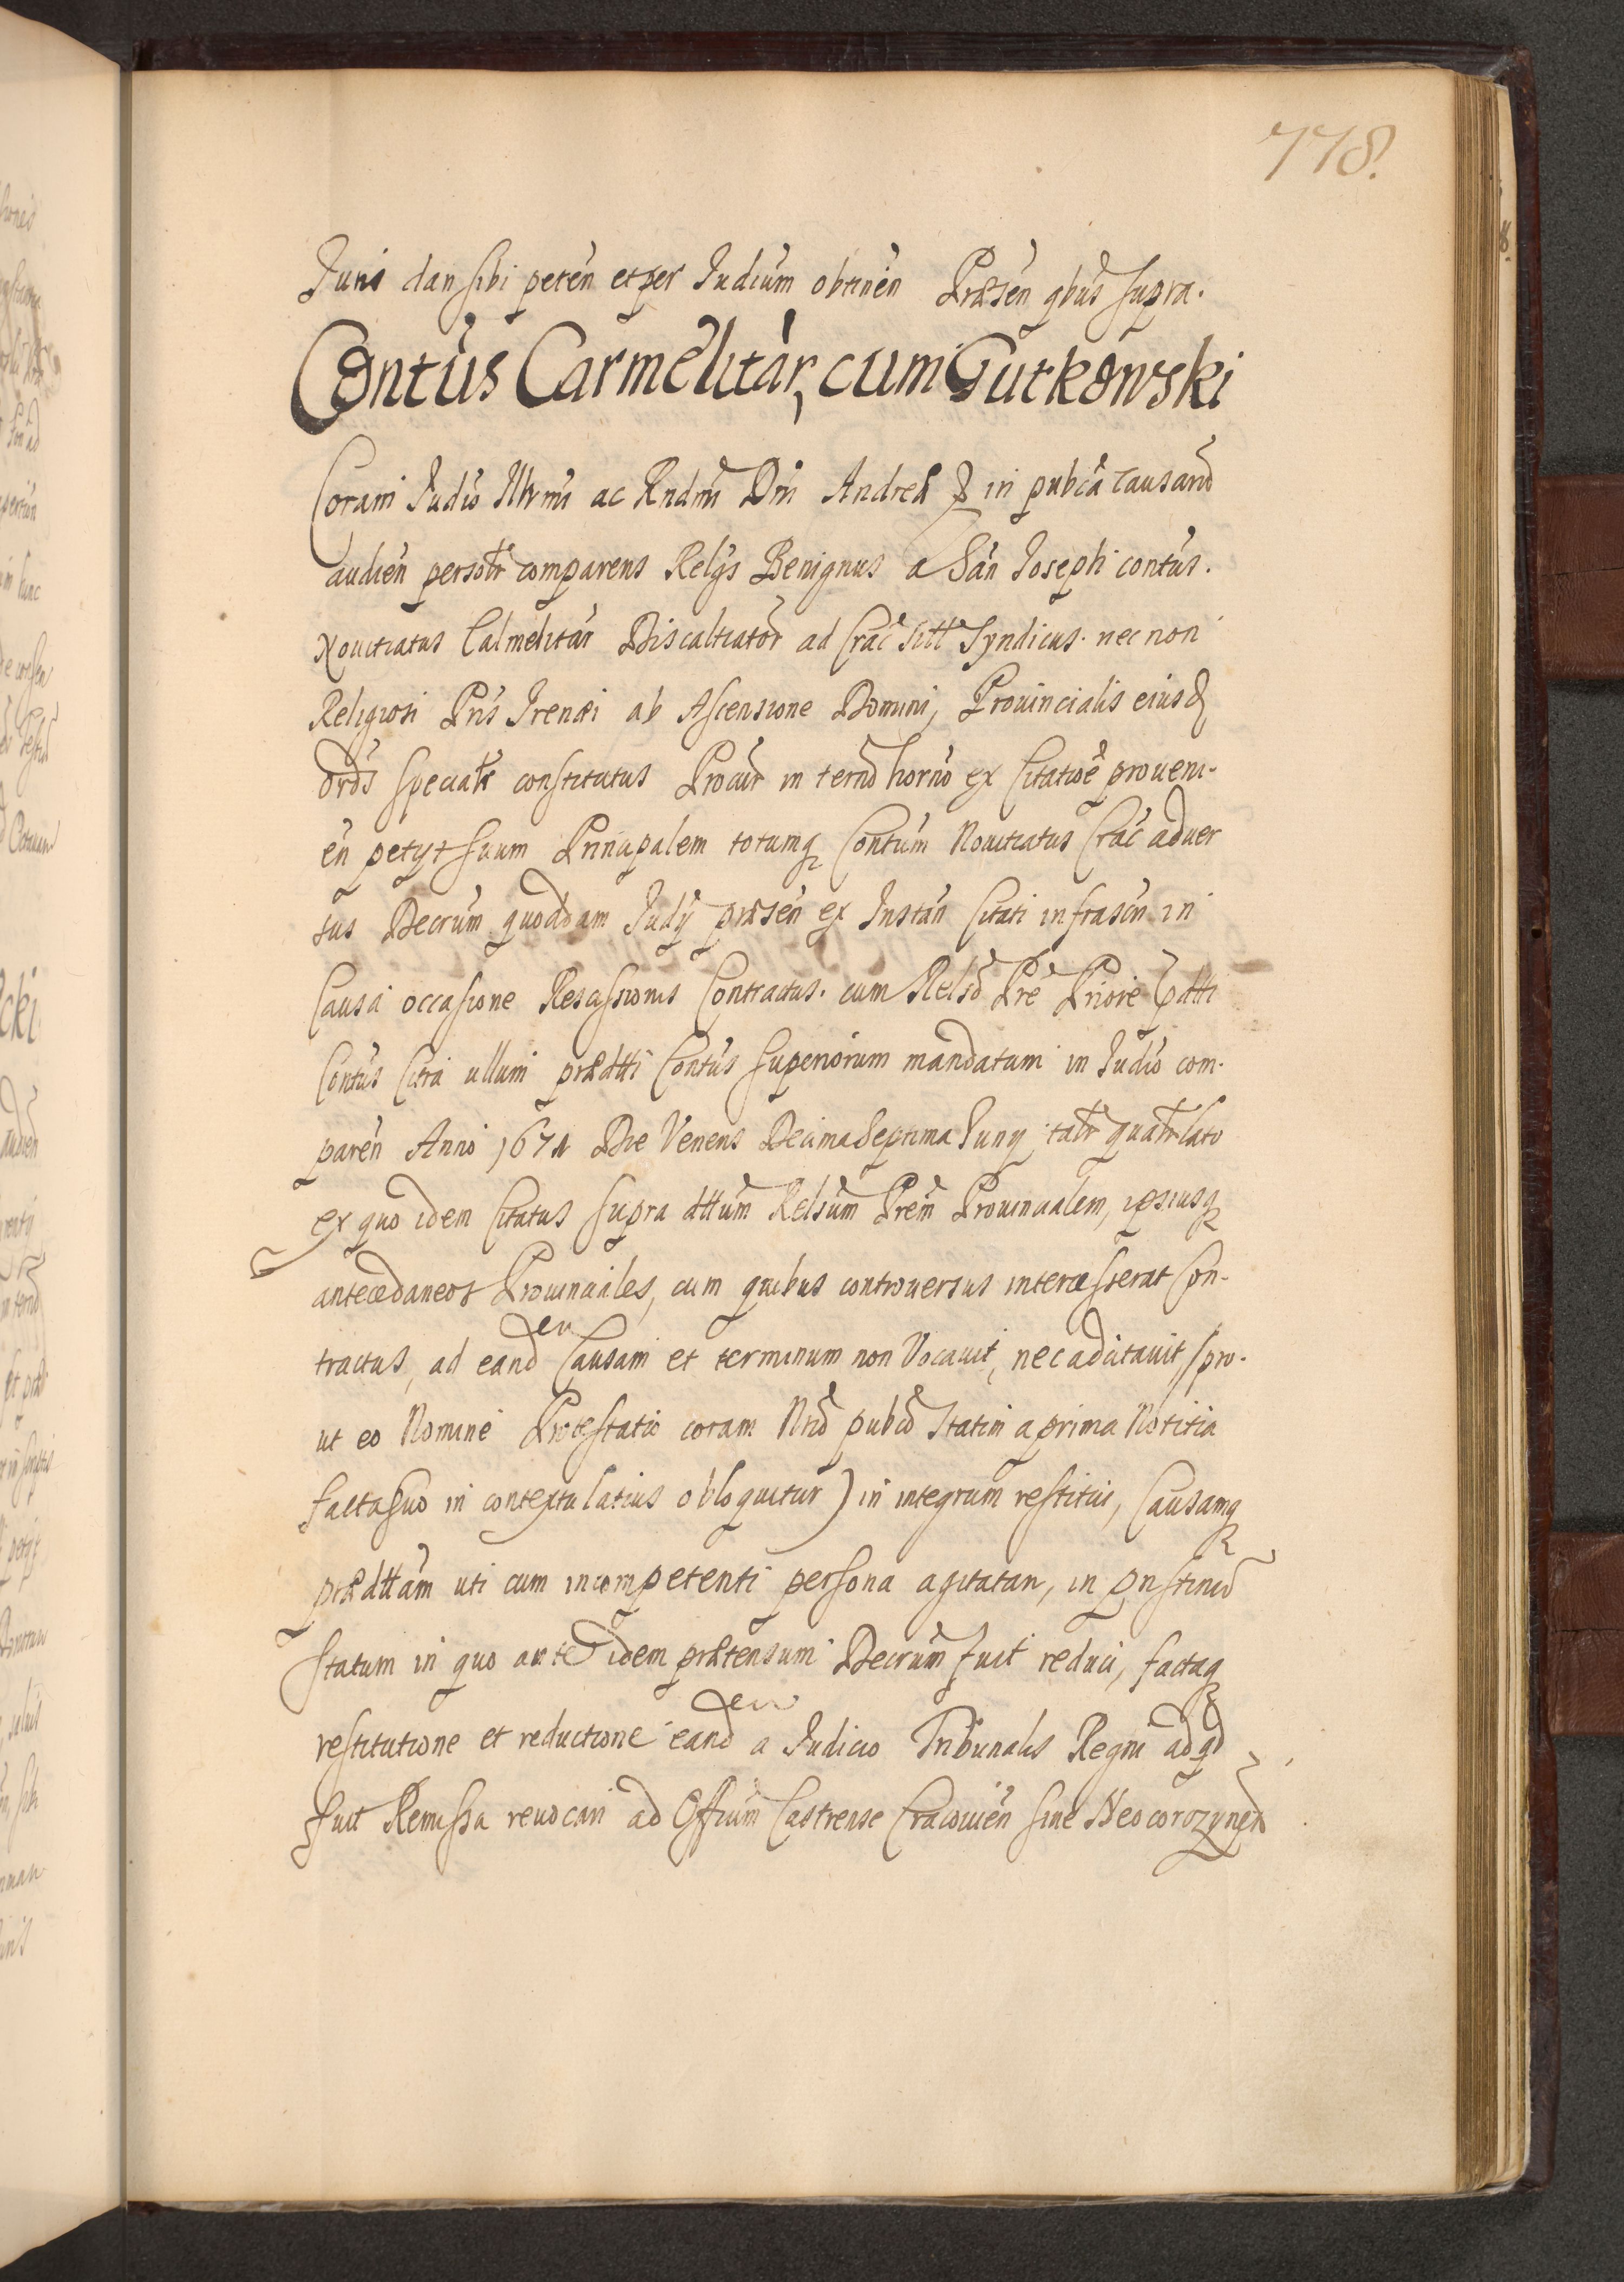 778.
Juris dan sibi petén et per Judiúm obtinén Præsén qbús supra.
Contús Carmelitár, cum Gutkowski
Coram Judió Illrmi ac Rndmi Dni Andreæ & in pubcâ causand
audién persolr comparens Relgs Benignus a Sán Joseph contús.
Nouitiatus Calmelitár Discaltiator ad Crac Sitt Syndicus. nec non
Religiosi Pris Irenæi ab Ascensione Domini, Prouincialis eiusd
Ords specialr constitutus Procur in termo horno ex Citatioé proueni-
én petyt suum Principalem totumq Contúm Nouitiatus Crac aduer
sus Decrúm quoddam Judy præsén ex Instán Citati infrascn in
Causa occasione Rescissionis Contractus. cum Relso Pre Priore pdtti
Contús Citra ullum prædtti Contús superiorum mandatum in Judió com-
parén Anno 1671 Die Veneris Decima Septima Juny talr qualr lato
ex quo idem Citatus supra dttum Relsum Prem Prouincialem, ipsiusq
antecedaneos Prouinciales, cum quibus controuersus intercesserat Con-
tractus, ad eand em Causam et terminum non Vocauit, nec adcitauit (pro-
ut eo Nomine Protestatio coram Ntrio pubco statim a prima Notitia
facta suo in contextu latius obloquitur) in integrum restitui, Causamq
prædttam uti cum incompetenti persona agitatam, in pristinum
statum in quo ante idem prætensum Decrúm fuit reduci, factaq
restitutione et reductione eand em a Judicio Tribunalis Regni ad qd
fuit Remissa reuocari ad Offium Castrense Cracouién siue Neocorczynen